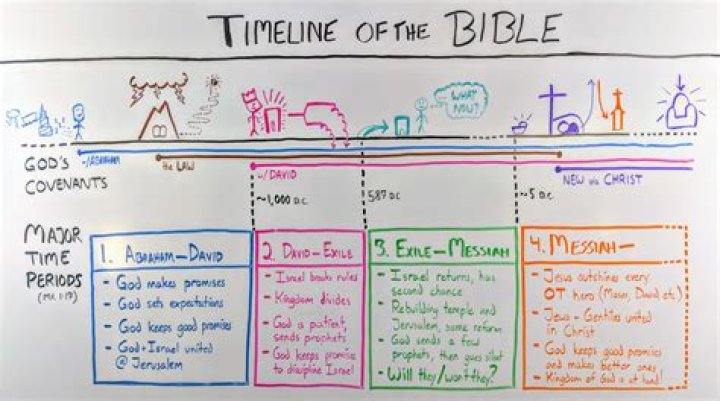 TIMELINE OF THE BIBLE
WHAT
NOW?
GOD'S
COVENANTS
w/ABRAHAM
the LAW
w/DAVID
NEW via CHRIST
~1,000 B.C.
587 B.C.
~5 B.C.
MAJOR
TIME
PERIODS
(Mt. 1:17)
1. ABRAHAM-DAVID
- God makes promises
- God sets expectations
- God keeps good promises
- God + Israel united
@ Jerusalem
2. DAVID-EXILE
- Israel breaks rules
- Kingdom divides
- God is patient,
sends prophets
- God keeps promise
to discipline Israel
3. EXILE-MESSIAH
- Israel returns, has
second chance
- Rebuilding temple and
Jerusalem, some reform
- God sends a few
prophets, then goes silent
- Will they/won't they?
4. MESSIAH-
- Jesus outshines every
OT hero (Moses, David, etc.)
- Jews + Gentiles united
in Christ
- God keeps good promises
and makes better ones
- Kingdom of God is at hand!